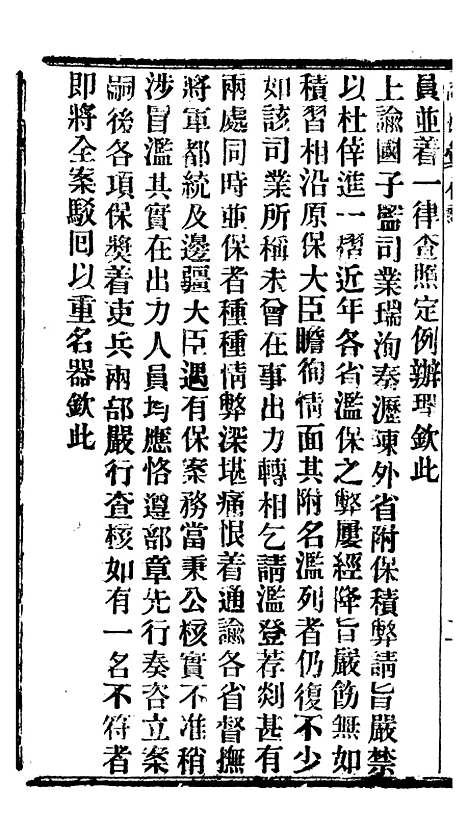 員並着一律查照定例辦理欽此
上諭國子監司業瑞洵奏瀝陳外省附保積弊請旨嚴禁
以杜倖進一摺近年各省濫保之弊屢經降旨嚴飭無如
積習相沿原保大臣瞻徇情面其附名濫列者仍復不少
如該司業所稱未曾在事出力轉相乞請濫登荐剡甚有
兩處同時並保者種種情弊深堪痛恨着通諭各省督撫
將軍都統及邊疆大臣遇有保案務當秉公核實不准稍
涉冒濫其實在出力人員均應恪遵部章先行奏咨立案
嗣後各項保奬着吏兵兩部嚴行查核如有一名不符者
即將全案駁回以重名器欽此